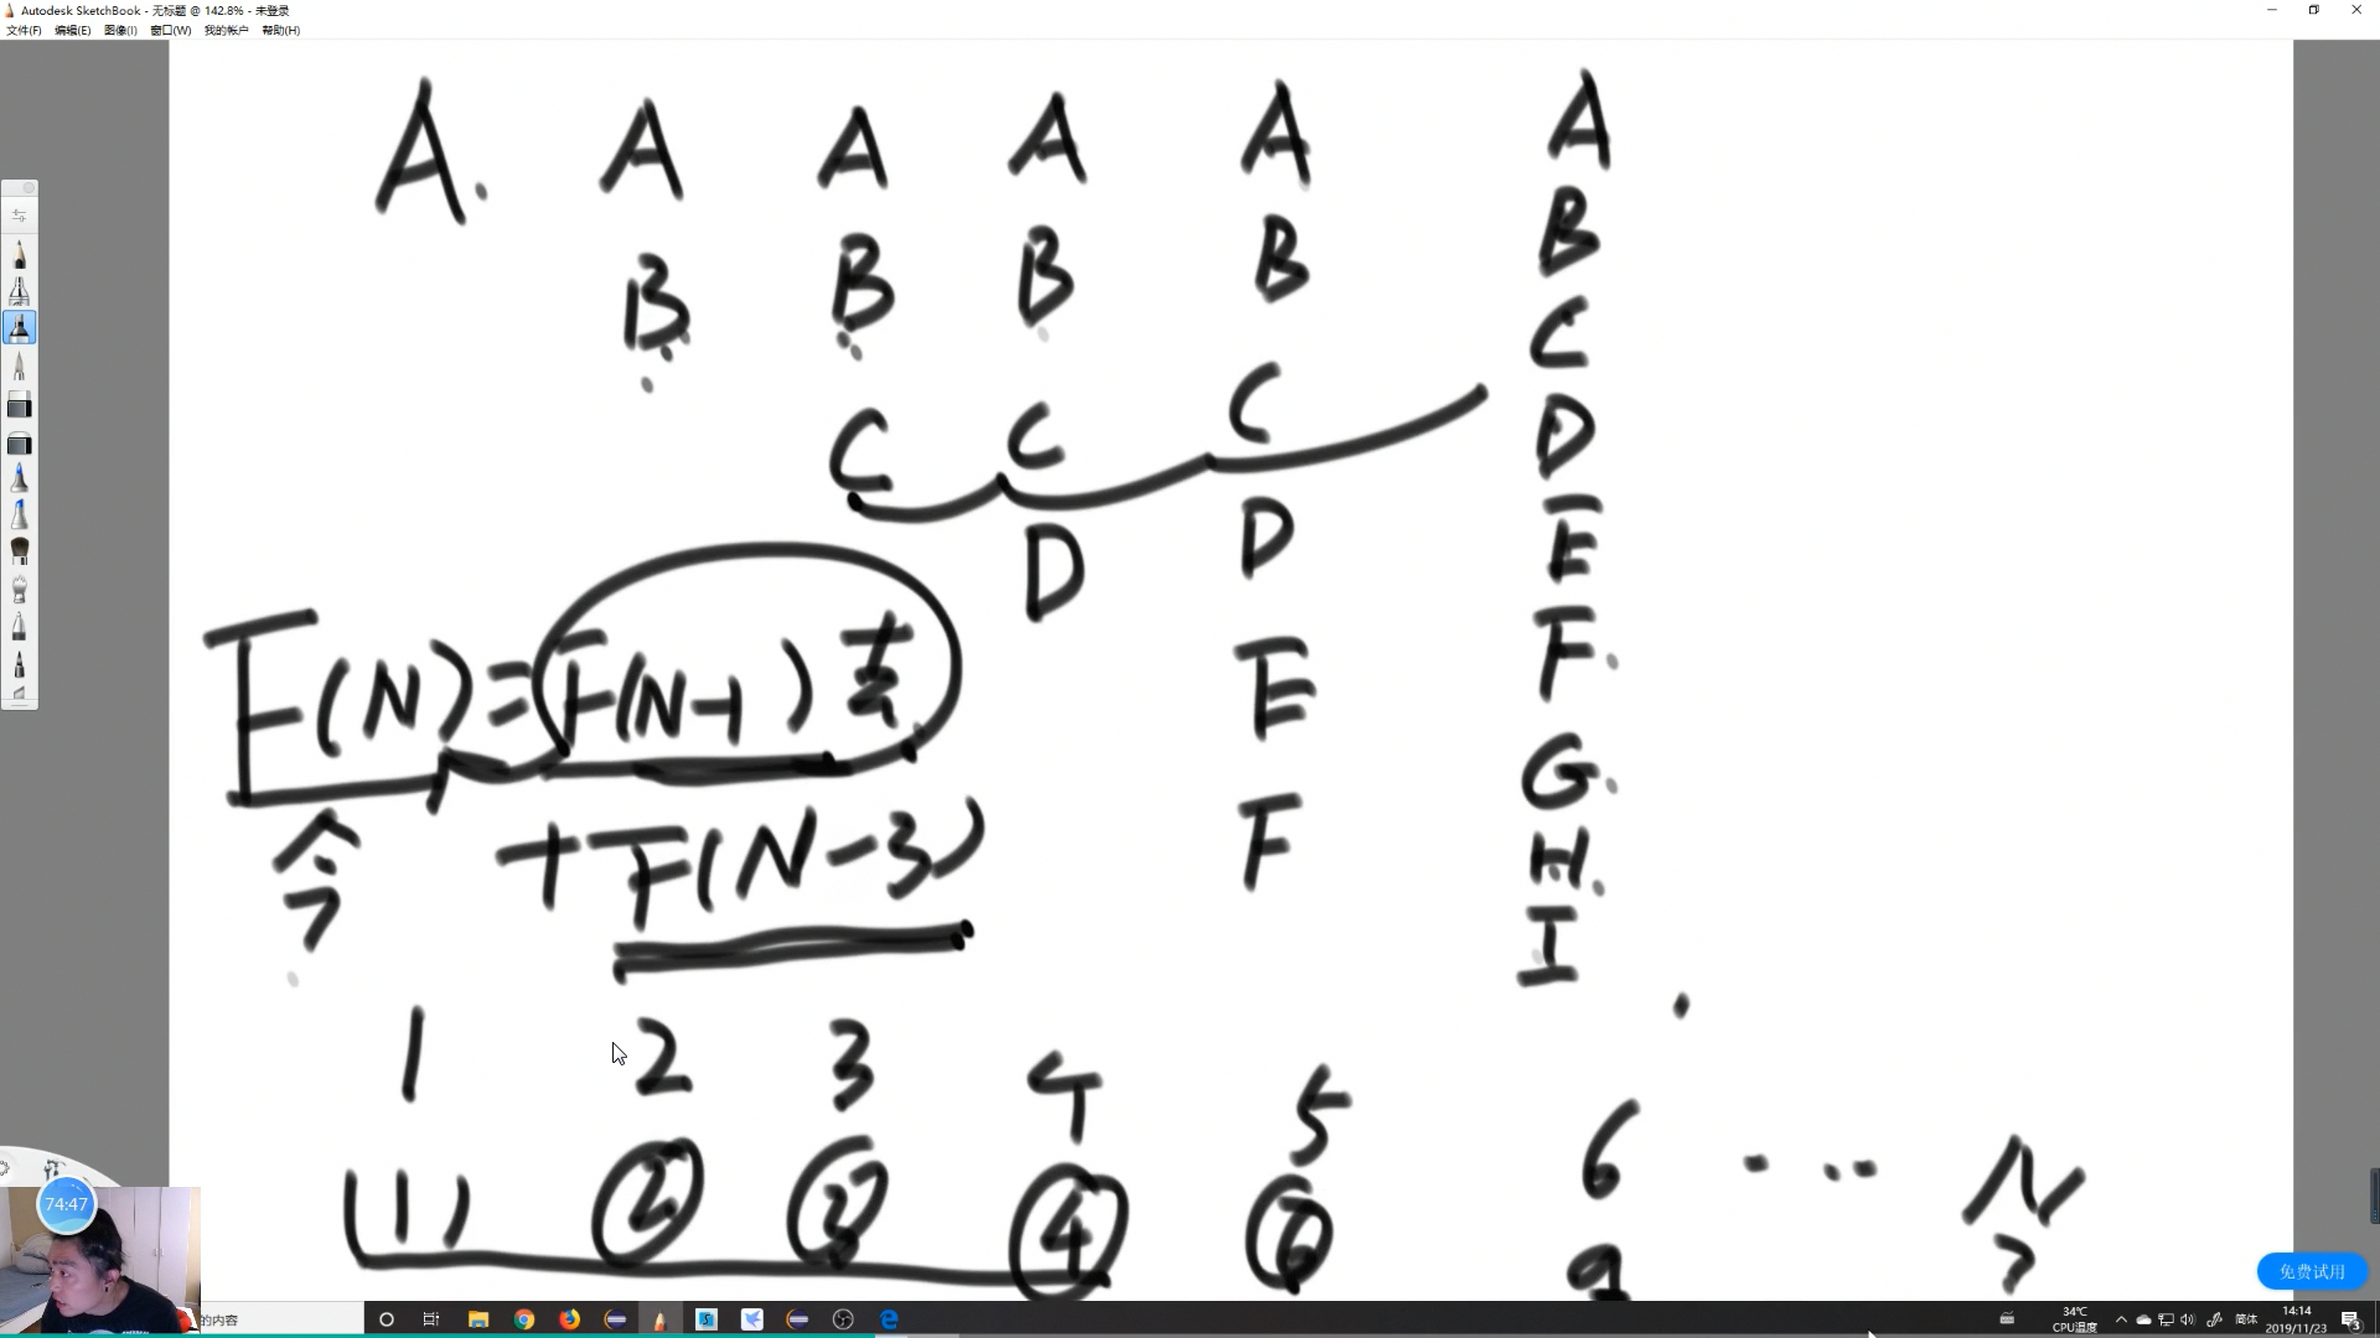 Autodesk SketchBook - 无标题 @ 142.8% - 未登录
文件(F) 编辑(E) 图像(I) 窗口(W) 我的帐户 帮助(H)
A. A A A A A
B B B B B
C C C C
D D D
E E
F F
G.
H.
I
F(N)=F(N-1)
今 +F(N-3)
1 2 3 4 5 6 ... N
(1) ② ③ ④ ⑥ 9 ?
74:47
免费试用
的内容
34℃
CPU温度
简体
14:14
2019/11/23
3